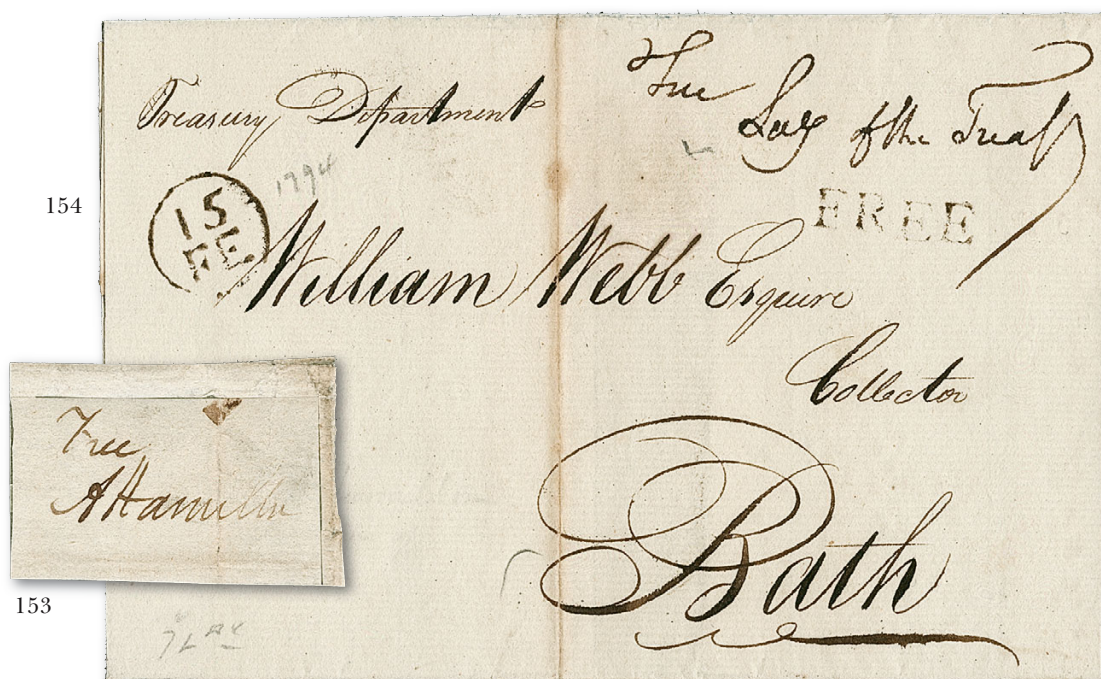 Treasury Department
Free
Secy of the Treasy
1794
FREE
15
FE
William Webb Esquire
Collector
Bath
154
Free
A Hamilton
153